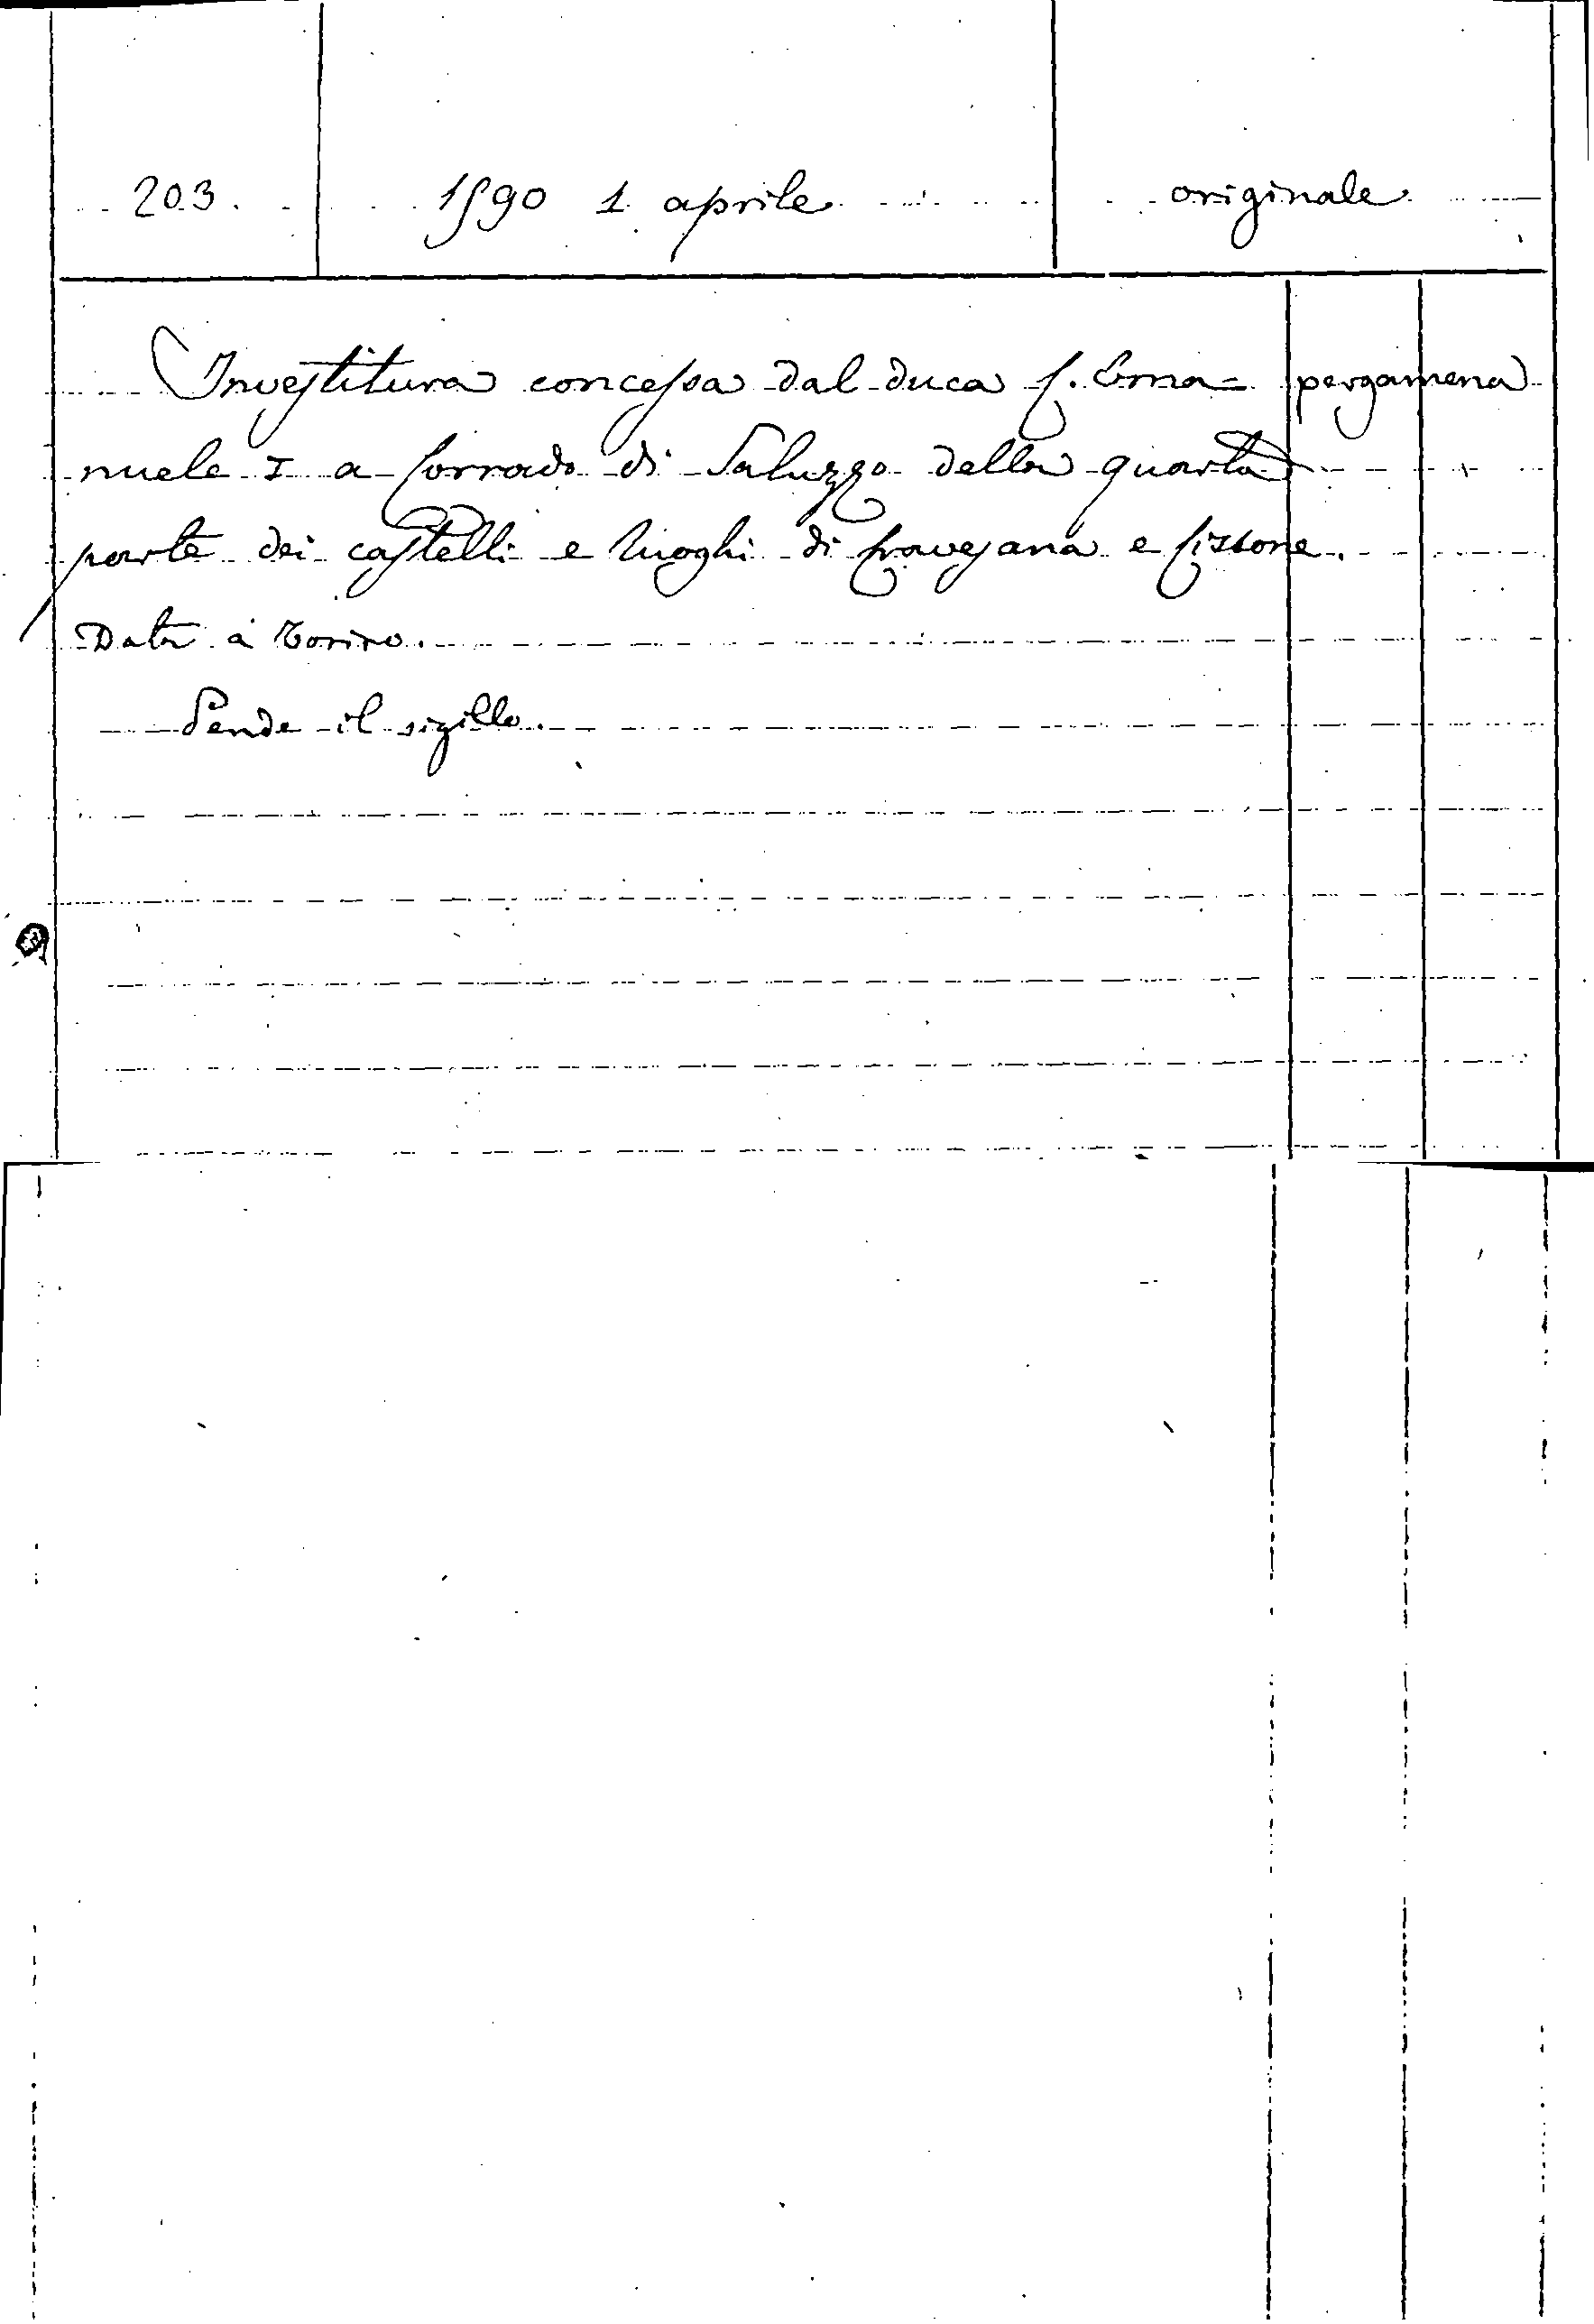 203. 1590 1 aprile originale
Investitura concessa dal duca C. Ema= pergamena
nuele I a Corrado di Saluzzo della quarta
parte dei castelli e luoghi di Cravesana e Cissone.
Data a Torino.
Pende il sigillo.